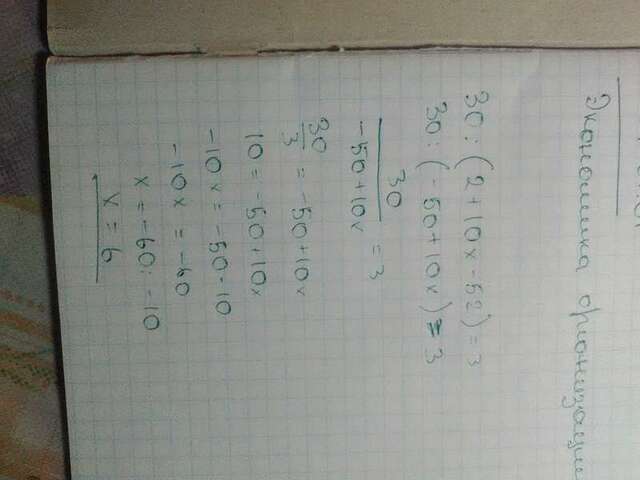 Экономика организации
30 : (2 + 10x - 52) = 3
30 : (-50 + 10x) = 3
30 / -50 + 10x = 3
30 / 3 = -50 + 10x
10 = -50 + 10x
-10x = -50 - 10
-10x = -60
x = -60 : -10
x = 6